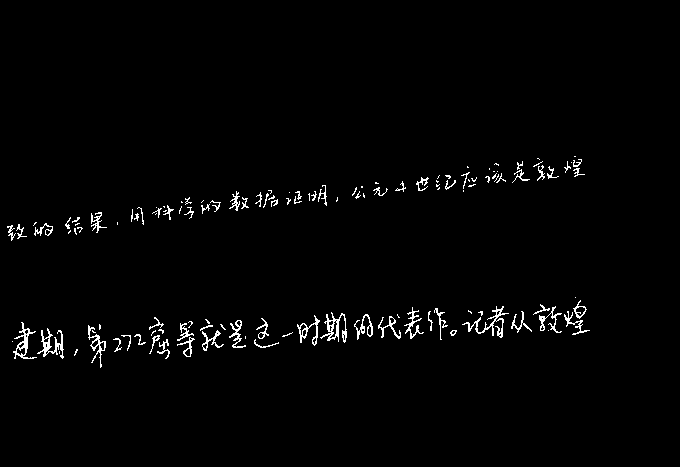 致的结果,用科学的数据证明,公元4世纪应该是敦煌
建期,第272窟等就是这一时期的代表作。记者从敦煌